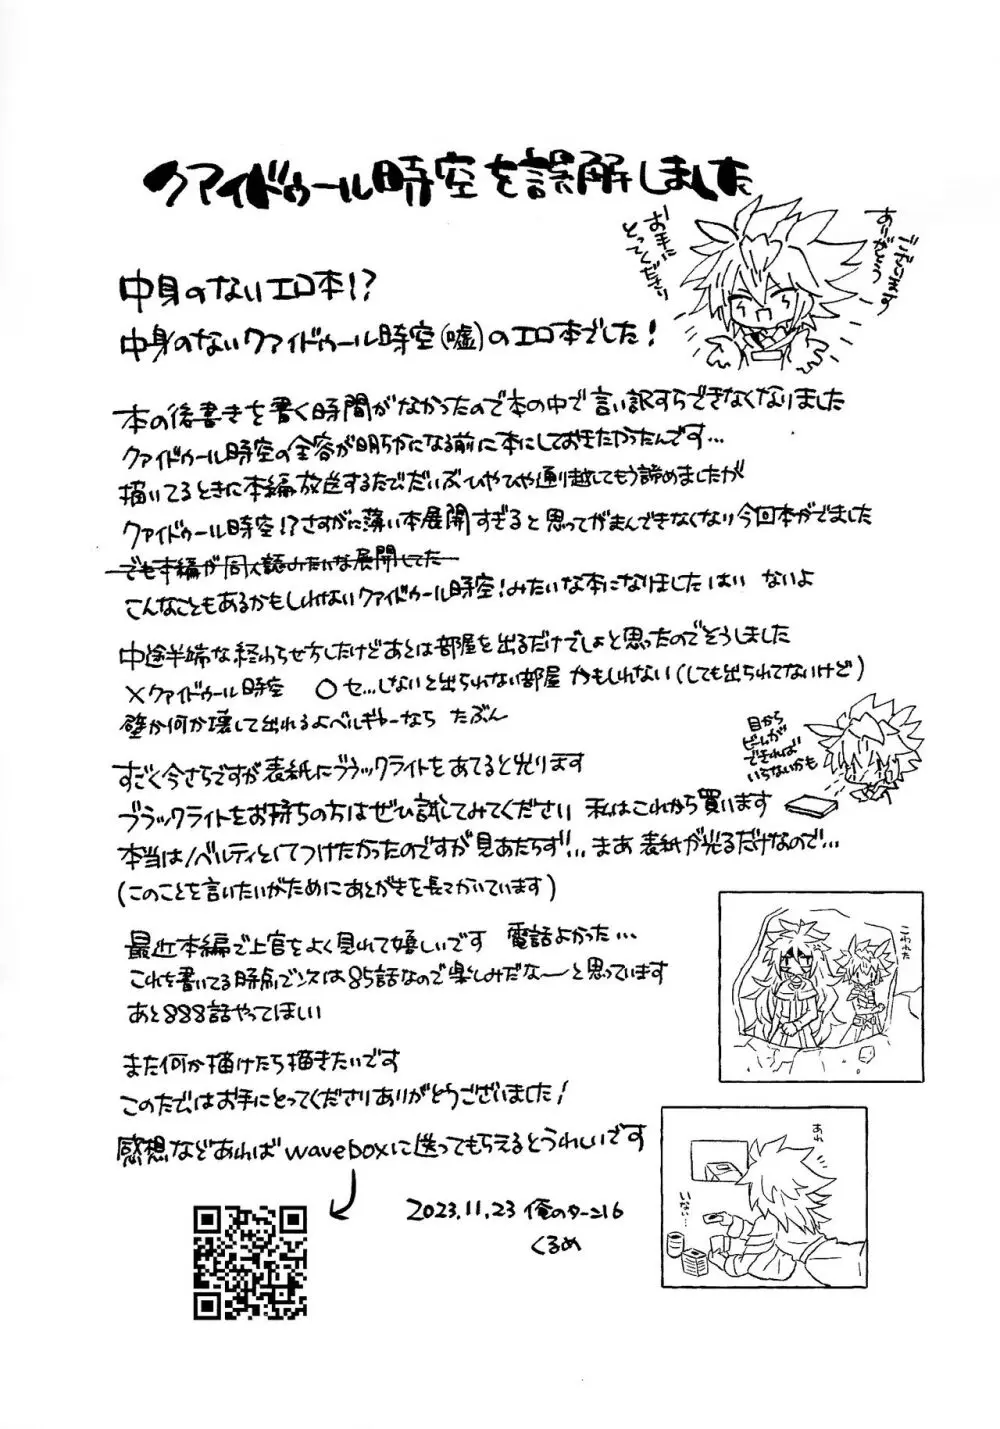 クァイドゥール時空を誤解しました
お手に
とってくださり
ありがとう
ございます
中身のないエロ本!?
中身のないクァイドゥール時空(嘘)のエロ本でした!
本の後書きを書く時間がなかったので本の中で言い訳すらできなくなりました
クァイドゥール時空の全容が明らかになる前に本にしておきたかったんです…
描いてるときに本編放送するたびだいぶひやひや通り越してもう諦めましたが
クァイドゥール時空!?さすがに薄い本展開すぎると思ってがまんできなくなり今回本がでました
でも本編が同人誌みたいな展開してた
こんなこともあるかもしれないクァイドゥール時空!みたいな本になりました はい ないよ
中途半端な終わらせ方したけどあとは部屋を出るだけでしょと思ったのでそうしました
×クァイドゥール時空 ○セ…しないと出られない部屋 かもしれない(しても出られてないけど)
壁か何か壊して出れるよベルギャーなら たぶん
目から
ビームが
できれば
いらないかも
すごく今さらですが表紙にブラックライトをあてると光ります
ブラックライトをお持ちの方はぜひ試してみてください 私はこれから買います
本当はノベルティとしてつけたかったのですが見あたらず… まあ表紙が光るだけなので…
(このことを言いたいがためにあとがきを長々かいています)
最近本編で上官をよく見れて嬉しいです 電話よかった…
これを書いてる時点でンスは85話なので楽しみだなーと思っています
あと888話やってほしい
こわれた
また何か描けたら描きたいです
このたびはお手にとってくださりありがとうございました!
感想などあれば waveboxに送ってもらえるとうれしいです
あれ
いない…
2023.11.23 俺のターン16
くるめ